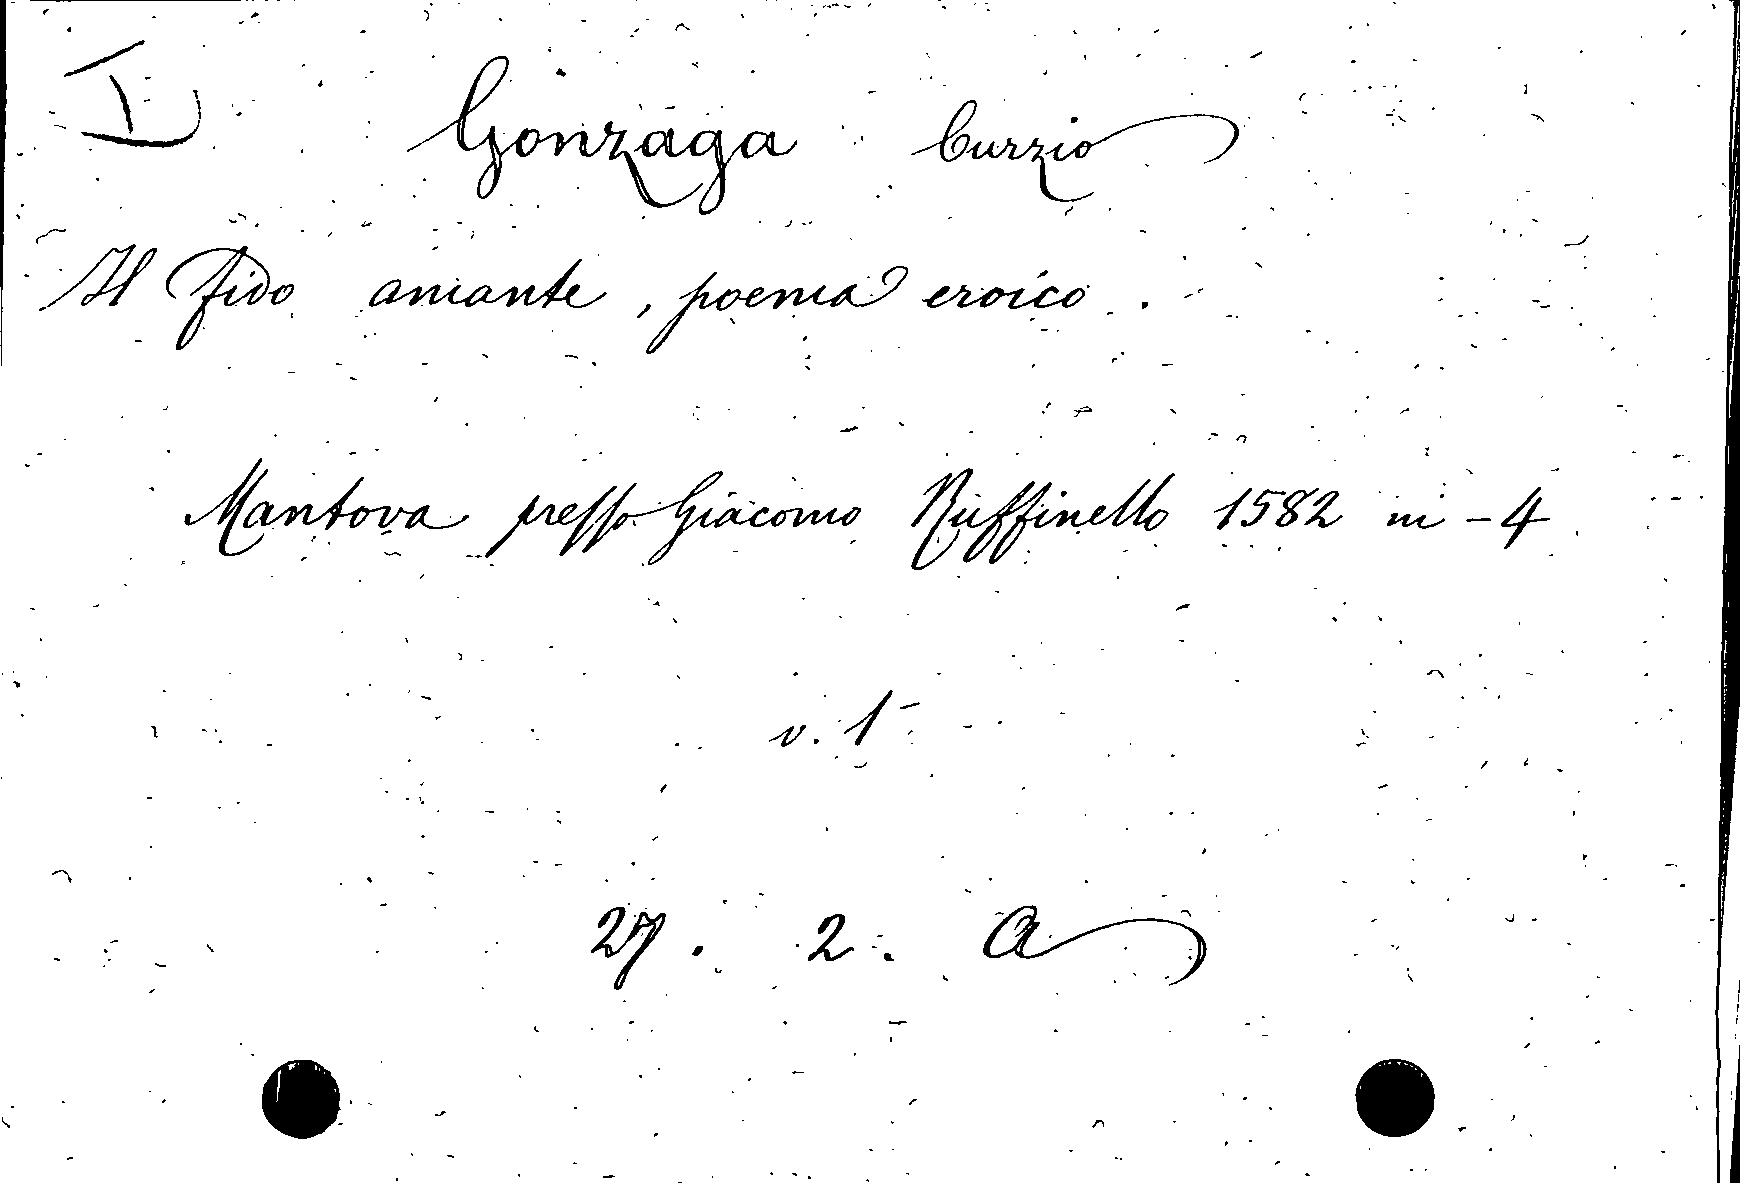 I
Gonzaga Curzio
Il Fido amante, poema eroico.
Mantova presso Giacomo Ruffinello 1582 in-4
v. 1
27. 2. a